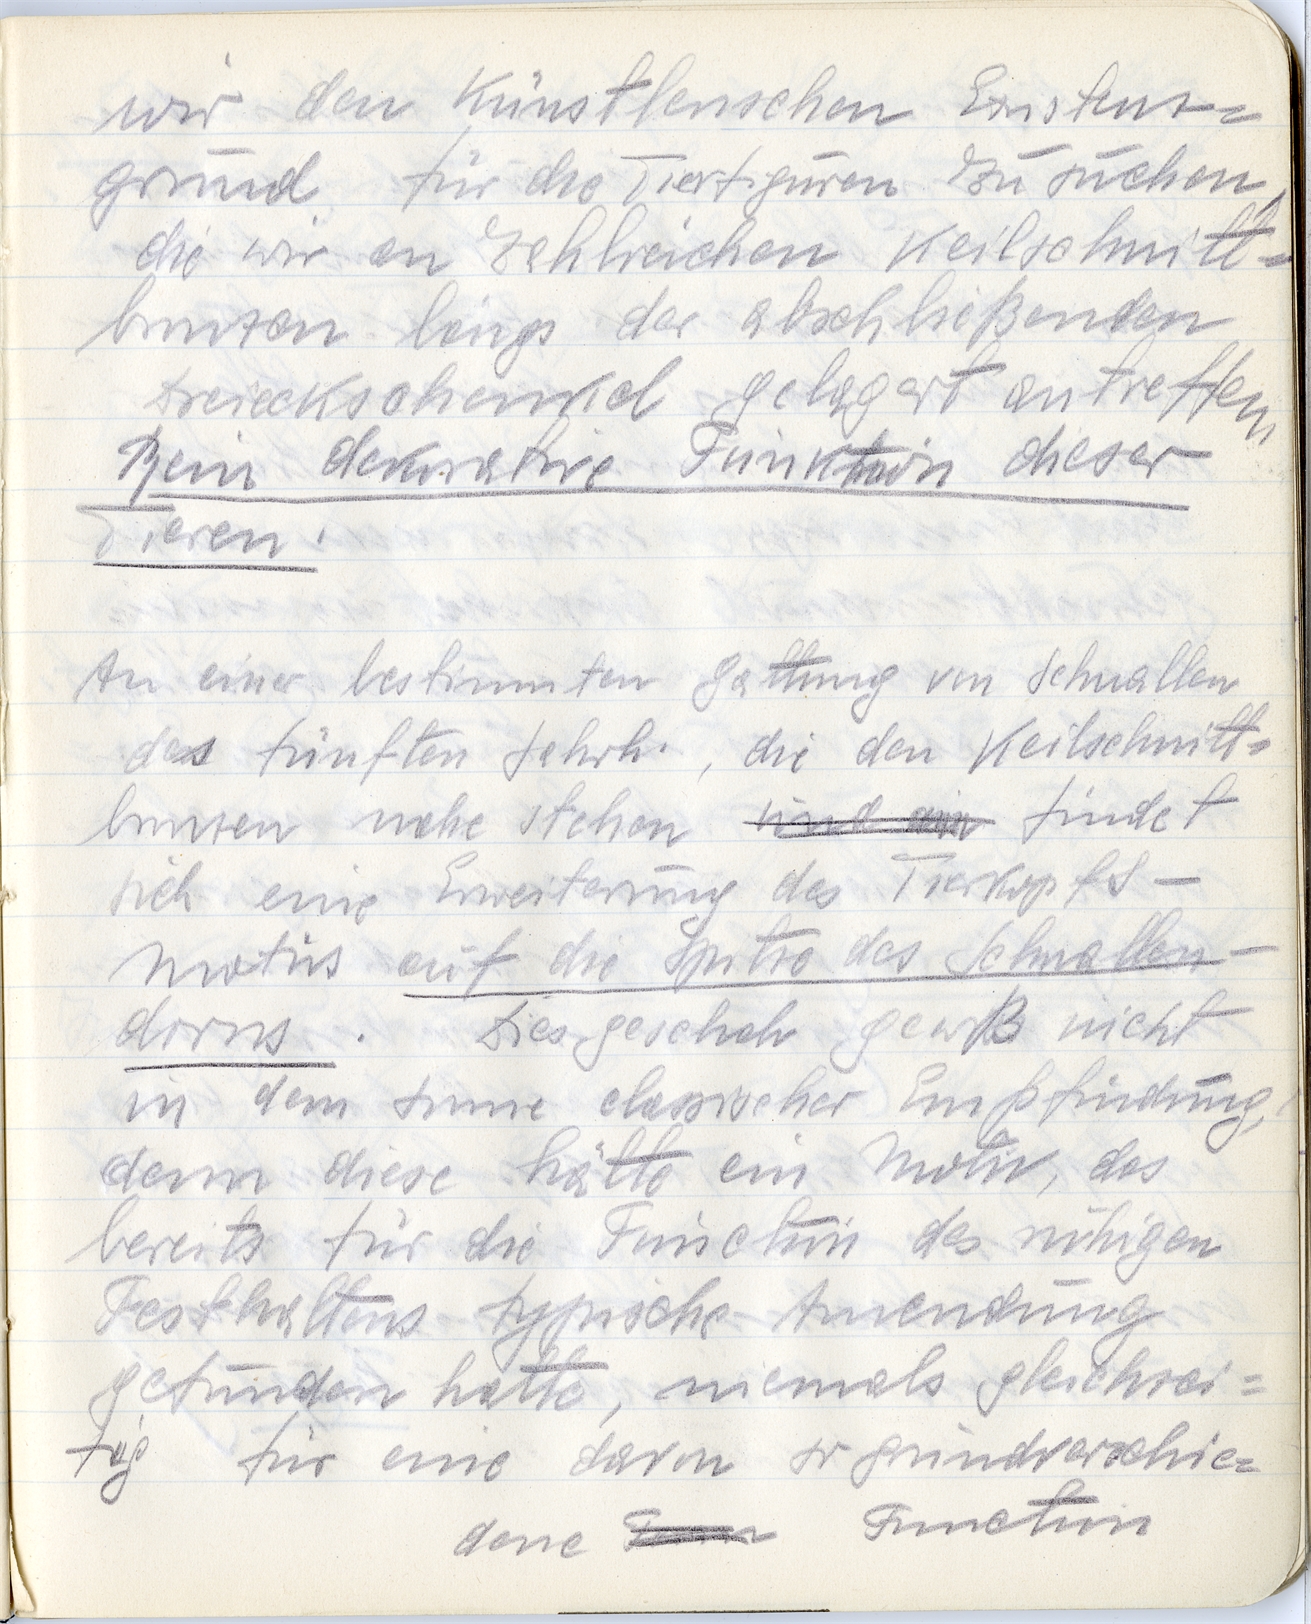 wir den Künstlerischen Existenz=
grund für die Tierfiguren zu suchen,
die wir an zahlreichen Keilschnitt=
bronzen längs der abschließenden
Dreieckschenkel gelagert antreffen
Rein dekorative Funktion dieser
Tieren.
An einer bestimmten Gattung von Schnallen
des fünften Jahrh., die den Keilschnitt=
bronzen nahe stehen und ein findet
sich eine Erweiterung des Tierkopfs-
Motivs auf die Spitze des Schnallen-
dorns. Dies geschah gewiß nicht
in dem Sinne classischer Empfindung,
denn diese hätte ein Motiv, das
bereits für die Function des ruhigen
Festhaltens typische Anwendung
gefunden hatte, niemals gleichzei=
tig für eine davon so grundverschie=
dene Function